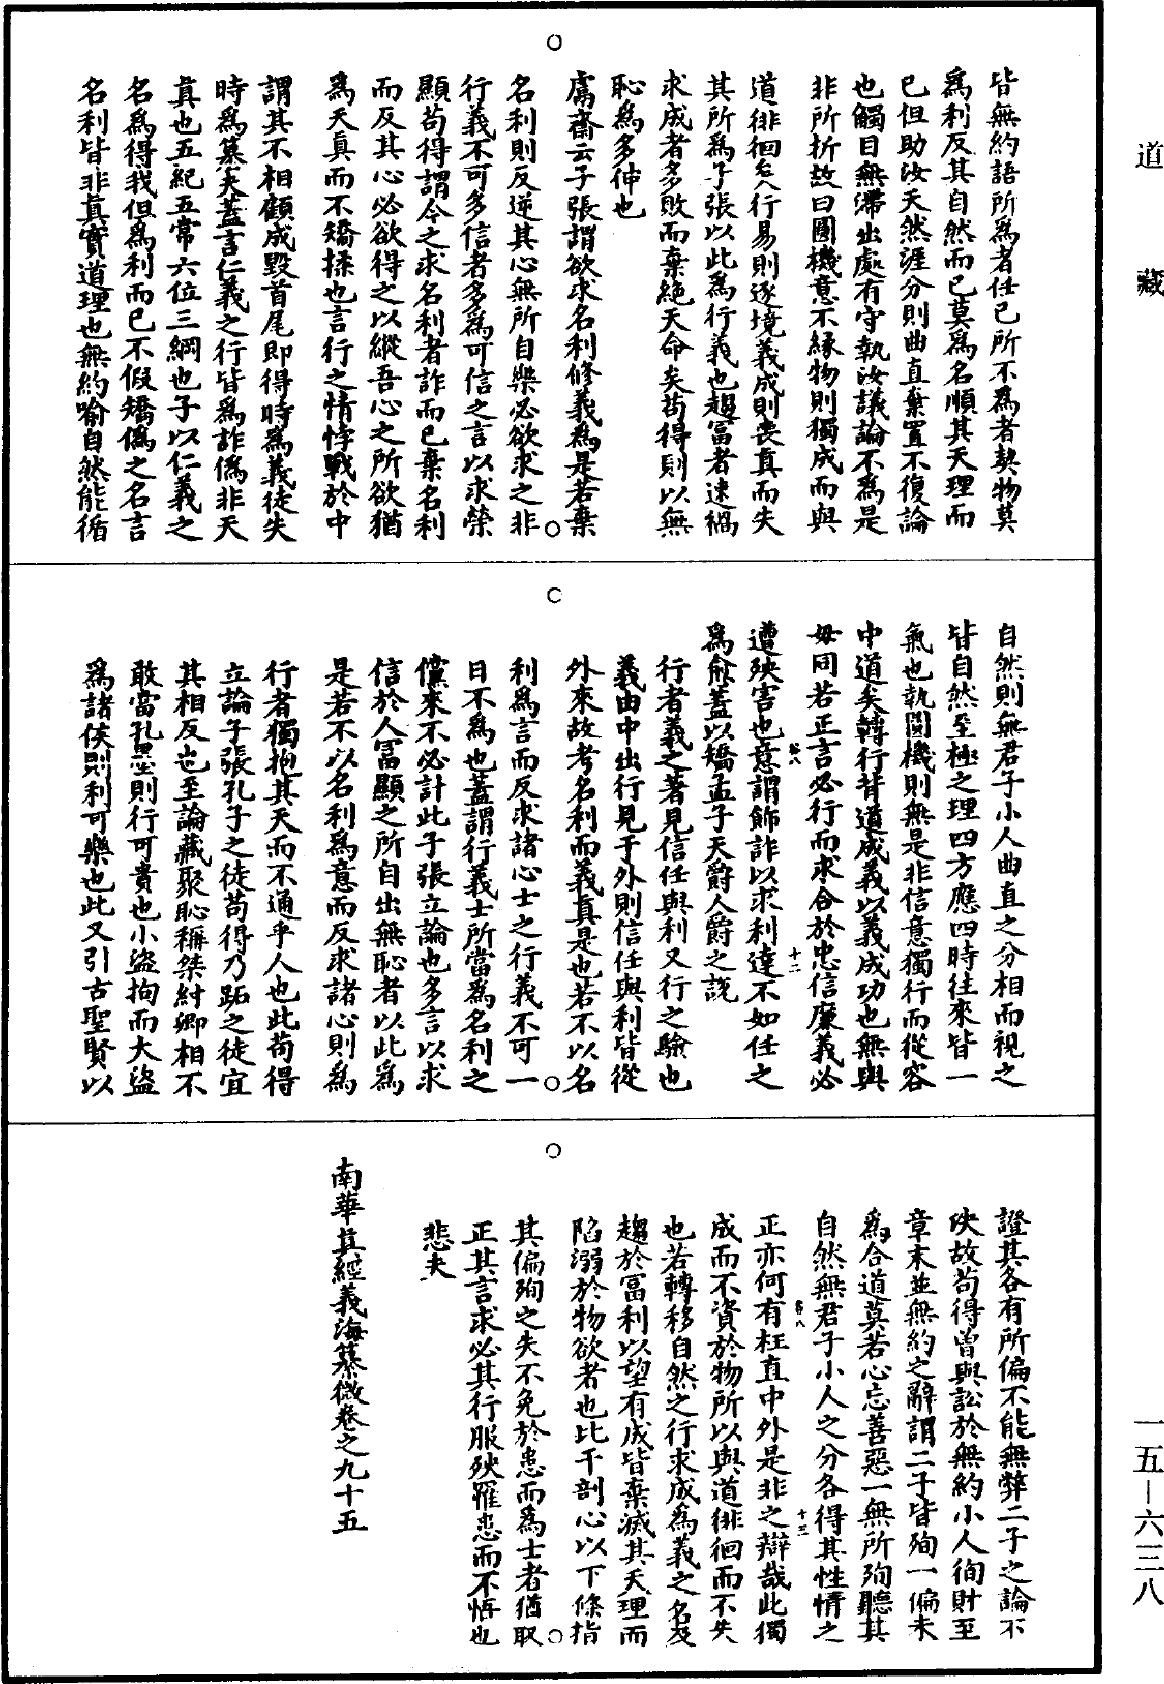 道藏
皆無約語所為者任已所不為者契物莫
為利反其自然而已莫為名順其天理而
已但助汝天然涯分則曲直棄置不復論
也觸目無滯出處有守執汝議論不為是
非所折故曰圓機意不緣物則獨成而與
道徘徊矣行易則逐境義成則喪真而失
其所為子張以此為行義也趨富者速禍
求成者多敗而棄絕天命矣苟得則以無
恥為多伸也
鬳齋云子張謂欲求名利修義為是若棄
名利則反逆其心無所自樂必欲求之非
行義不可多信者多為可信之言以求榮
顯苟得謂今之求名利者詐而已棄名利
而反其心必欲得之以縱吾心之所欲猶
為天真而不矯揉也言行之情悖戰於中
謂其不相顧成毀首尾即得時為義徒失
時為篡夫蓋言仁義之行皆為詐偽非天
真也五紀五常六位三綱也子以仁義之
名為得我但為利而已不假矯偽之名言
名利皆非真實道理也無約喻自然能循
自然則無君子小人曲直之分相而視之
皆自然至極之理四方應四時往來皆一
氣也執圓機則無是非信意獨行而從容
中道矣轉行背道成義以義成功也無與
毋同若正言必行而求合於忠信廉義必
遭殃害也意謂飾詐以求利達不如任之
為愈蓋以矯孟子天爵人爵之說
行者義之著見信任與利又行之驗也
義由中出行見于外則信任與利皆從
外來故考名利而義真是也若不以名
利為言而反求諸心士之行義不可一
日不為也蓋謂行義士所當為名利之
儻來不必計此子張立論也多言以求
信於人富顯之所自出無恥者以此為
是若不以名利為意而反求諸心則為
行者獨抱其天而不通乎人也此苟得
立論子張孔子之徒苟得乃跖之徒宜
其相反也至論藏聚恥稱桀紂卿相不
敢當孔墨則行可貴也小盜拘而大盜
為諸侯則利可樂也此又引古聖賢以
證其各有所偏不能無弊二子之論不
決故苟得曾與訟於無約小人徇財至
章末並無約之辭謂二子皆殉一偏未
為合道莫若心忘善惡一無所殉聽其
自然無君子小人之分各得其性情之
正亦何有枉直中外是非之辯哉此獨
成而不資於物所以與道徘徊而不失
也若轉移自然之行求成為義之名及
趨於富利以望有成皆棄滅其天理而
陷溺於物欲者也比干剖心以下條指
其偏殉之失不免於患而為士者猶取
正其言求必其行服殃罹患而不悟也
悲夫
南華真經義海纂微卷之九十五
一五—六三八